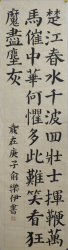 楚江春水千波四壯士揮鞭萬
馬催中華何懼多此難笑看狂
魔盡塵灰
歲在庚子俞樂伊書